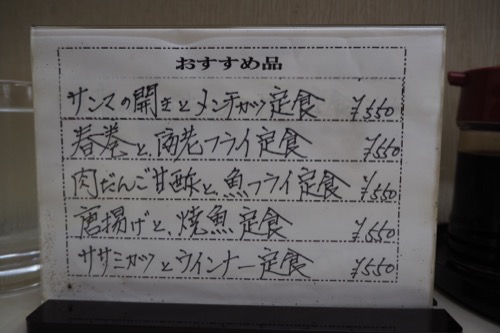 おすすめ品
サンマの開きとメンチカツ定食 ¥550
春巻と、海老フライ定食 ¥550
肉だんご甘酢と、魚フライ定食 ¥550
唐揚げと、焼魚定食 ¥550
ササミカツとウインナー定食 ¥550